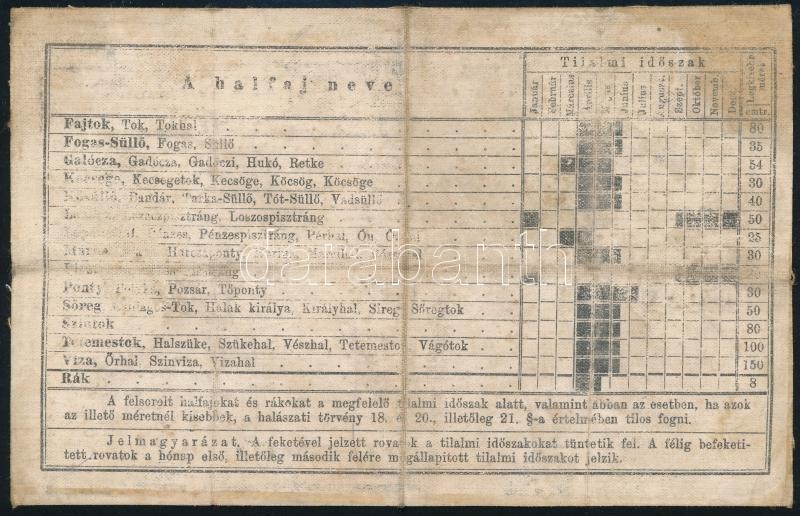 A halfaj neve
Tilalmi időszak
Január
Február
Március
Április
Junius
Julius
August.
Szept.
Október
Novemb.
Dec.
Legkisebb méret
cmtr.
Fajtok, Tok, Tokhal 80
Fogas-Süllő, Fogas, Süllő 35
Galócza, Gadócza, Gadóczi, Hukó, Retke 54
Kecsege, Kecsegetok, Kecsöge, Köcsög, Köcsöge 30
Bandár, Tarka-Süllő, Tót-Süllő, Vadsüllő 40
Loszospisztráng 50
Pénzespisztráng, Pérhal, Ön 25
30
Ponty, Pozsár, Tőponty 30
Sőreg, Tok, Halak királya, Királyhal, Síreg, Sőregtok 50
Szintok 80
Tetemestok, Halszüke, Szükehal, Vészhal, Tetemestok, Vágótok 100
Viza, Őrhal, Szinviza, Vizahal 150
Rák 8
A felsorolt halfajokat és rákokat a megfelelő tilalmi időszak alatt, valamint abban az esetben, ha azok
az illető méretnél kisebbek, a halászati törvény 18. és 20., illetőleg 21. §-a értelmében tilos fogni.
Jelmagyarázat. A feketével jelzett rovatok a tilalmi időszakokat tüntetik fel. A félig befeketi-
tett rovatok a hónap első, illetőleg második felére megállapitott tilalmi időszakot jelzik.
darabanth